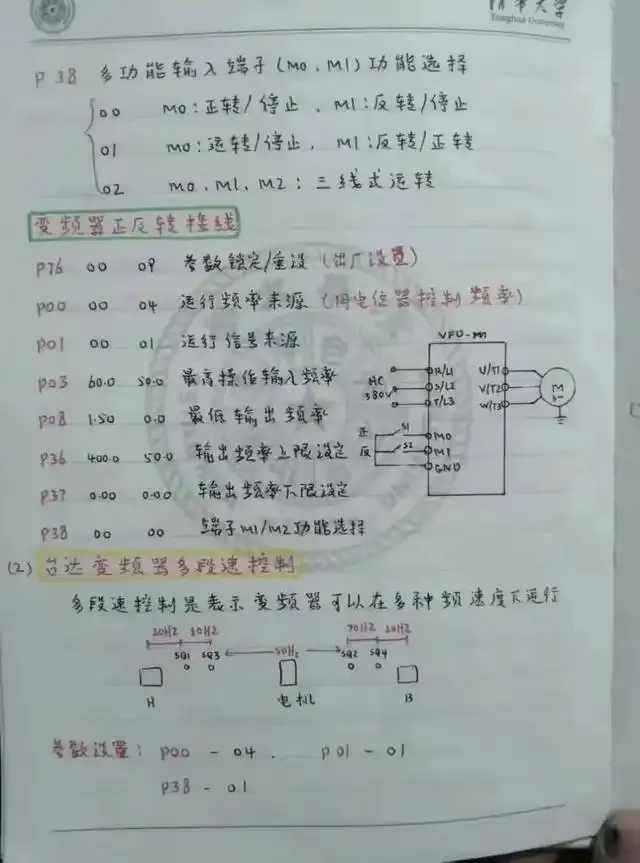 清华大学
Tsinghua University
P38 多功能输入端子(M0、M1)功能选择
00 M0:正转/停止、M1:反转/停止
01 M0:运转/停止,M1:反转/正转
02 M0、M1、M2:三线式运转
变频器正反转接线
P76 00 09 参数锁定/重设(出厂设置)
P00 00 04 运行频率来源(用电位器控制频率)
P01 00 01 运行信号来源
P03 60.0 50.0 最高操作输入频率
P08 1.50 0.0 最低输出频率
P36 400.0 50.0 输出频率上限设定
P37 0.00 0.00 输出频率下限设定
P38 00 00 端子M1/M2功能选择
VFD-M
AC 380V
R/L1 U/T1
S/L2 V/T2
T/L3 W/T3
正 S1 M0
反 S2 M1
GND
(2)台达变频器多段速控制
多段速控制是表示变频器可以在多种频速度下运行
20HZ 30HZ 50HZ 20HZ
SQ1 SQ3 SQ2 SQ4
A 电机 B
参数设置:P00-04. P01-01
P38-01